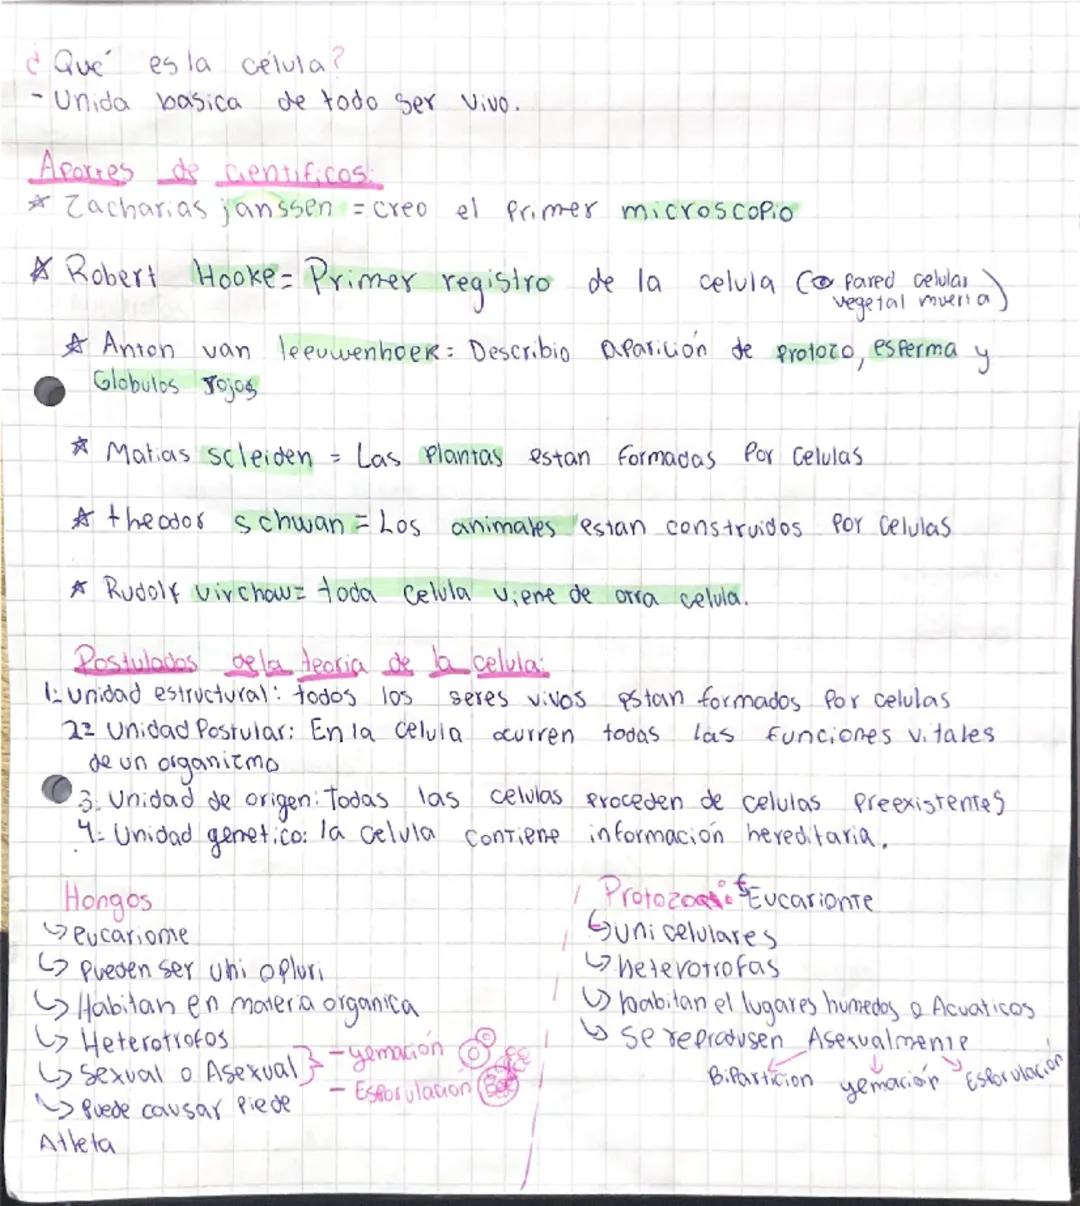 ¿Que es la célula?
- Unida basica de todo ser vivo.
Aportes de cientificos:
* Zacharias janssen = creo el primer microscopio
* Robert Hooke = Primer registro de la celula ( pared celular
vegetal muerta)
* Anton van leeuwenhoek = Describio aparición de protozo, esperma y
Globulos rojos
* Matias scleiden = Las plantas estan formadas por celulas
* theodor schwan = Los animales estan construidos por celulas
* Rudolf virchow = toda celula viene de otra celula.
Postulados de la teoria de la celula:
1- unidad estructural: todos los seres vivos estan formados por celulas
2- Unidad Postular: En la celula ocurren todas las funciones vitales
de un organizmo
3- Unidad de origen: Todas las celulas proceden de celulas preexistentes
4- Unidad genetico: la celula contiene información hereditaria.
Hongos
↳ eucarionte
↳ pueden ser uni o pluri
↳ Habitan en materia organica
↳ Heterotrofos
↳ sexual o Asexual } - yemación
- Esporulacion
↳ puede causar piede
Atleta
Protozoos: Eucarionte
↳ unicelulares
↳ heterotrofas
↳ habitan el lugares humedos o Acuaticos
↳ se reprodusen Asexualmente
Biparticion yemación Esporulación